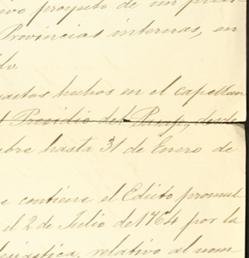 ivo proyecto de un
Provincias internas, en
hechos en el capellan
l Presidio del desde
bre hasta 31 de Enero de
e contiene el Edicto promul
el 2 de Julio de 1764 por la
relativo al nom